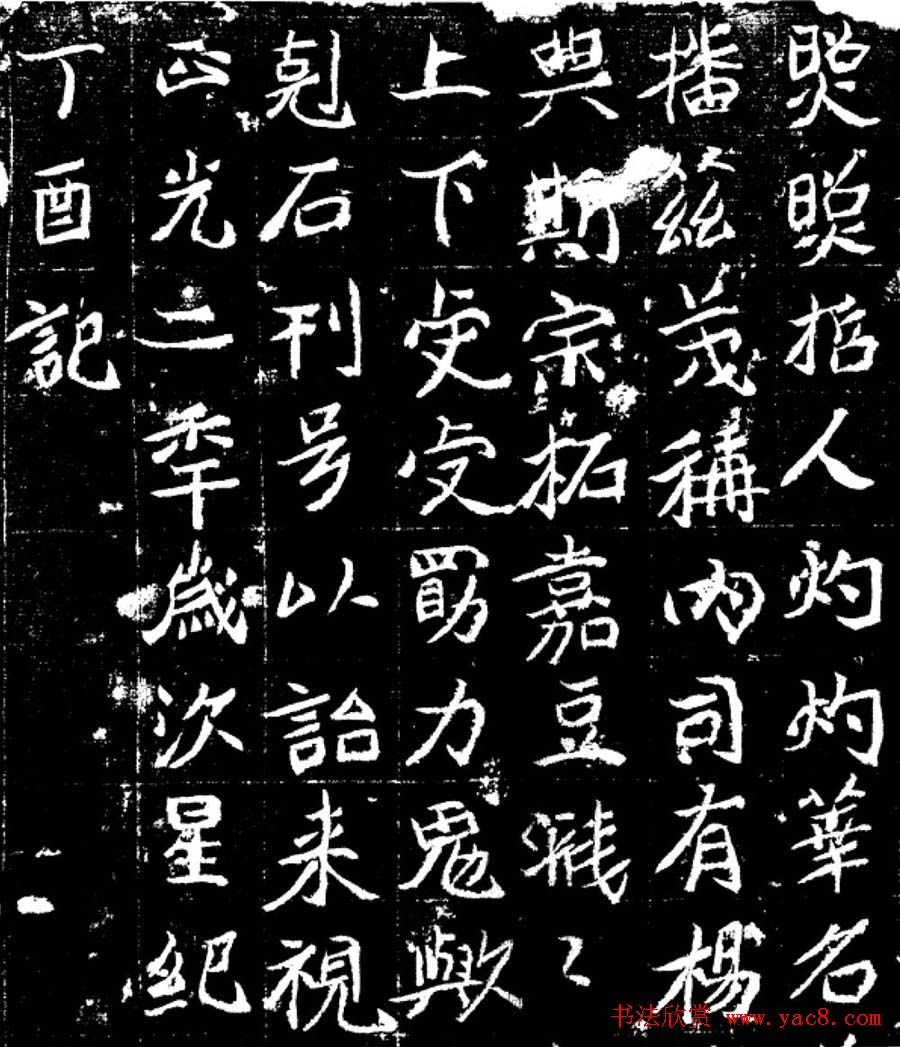 照照哲人灼灼華名
播茲茂稱内司有楊
典斯宗柘嘉豆濺〻
上下虔虔勖力鬼歟
剋石刊号以詒来視
正光二秊歲次星紀
丁酉記
书法欣赏 www.yac8.com